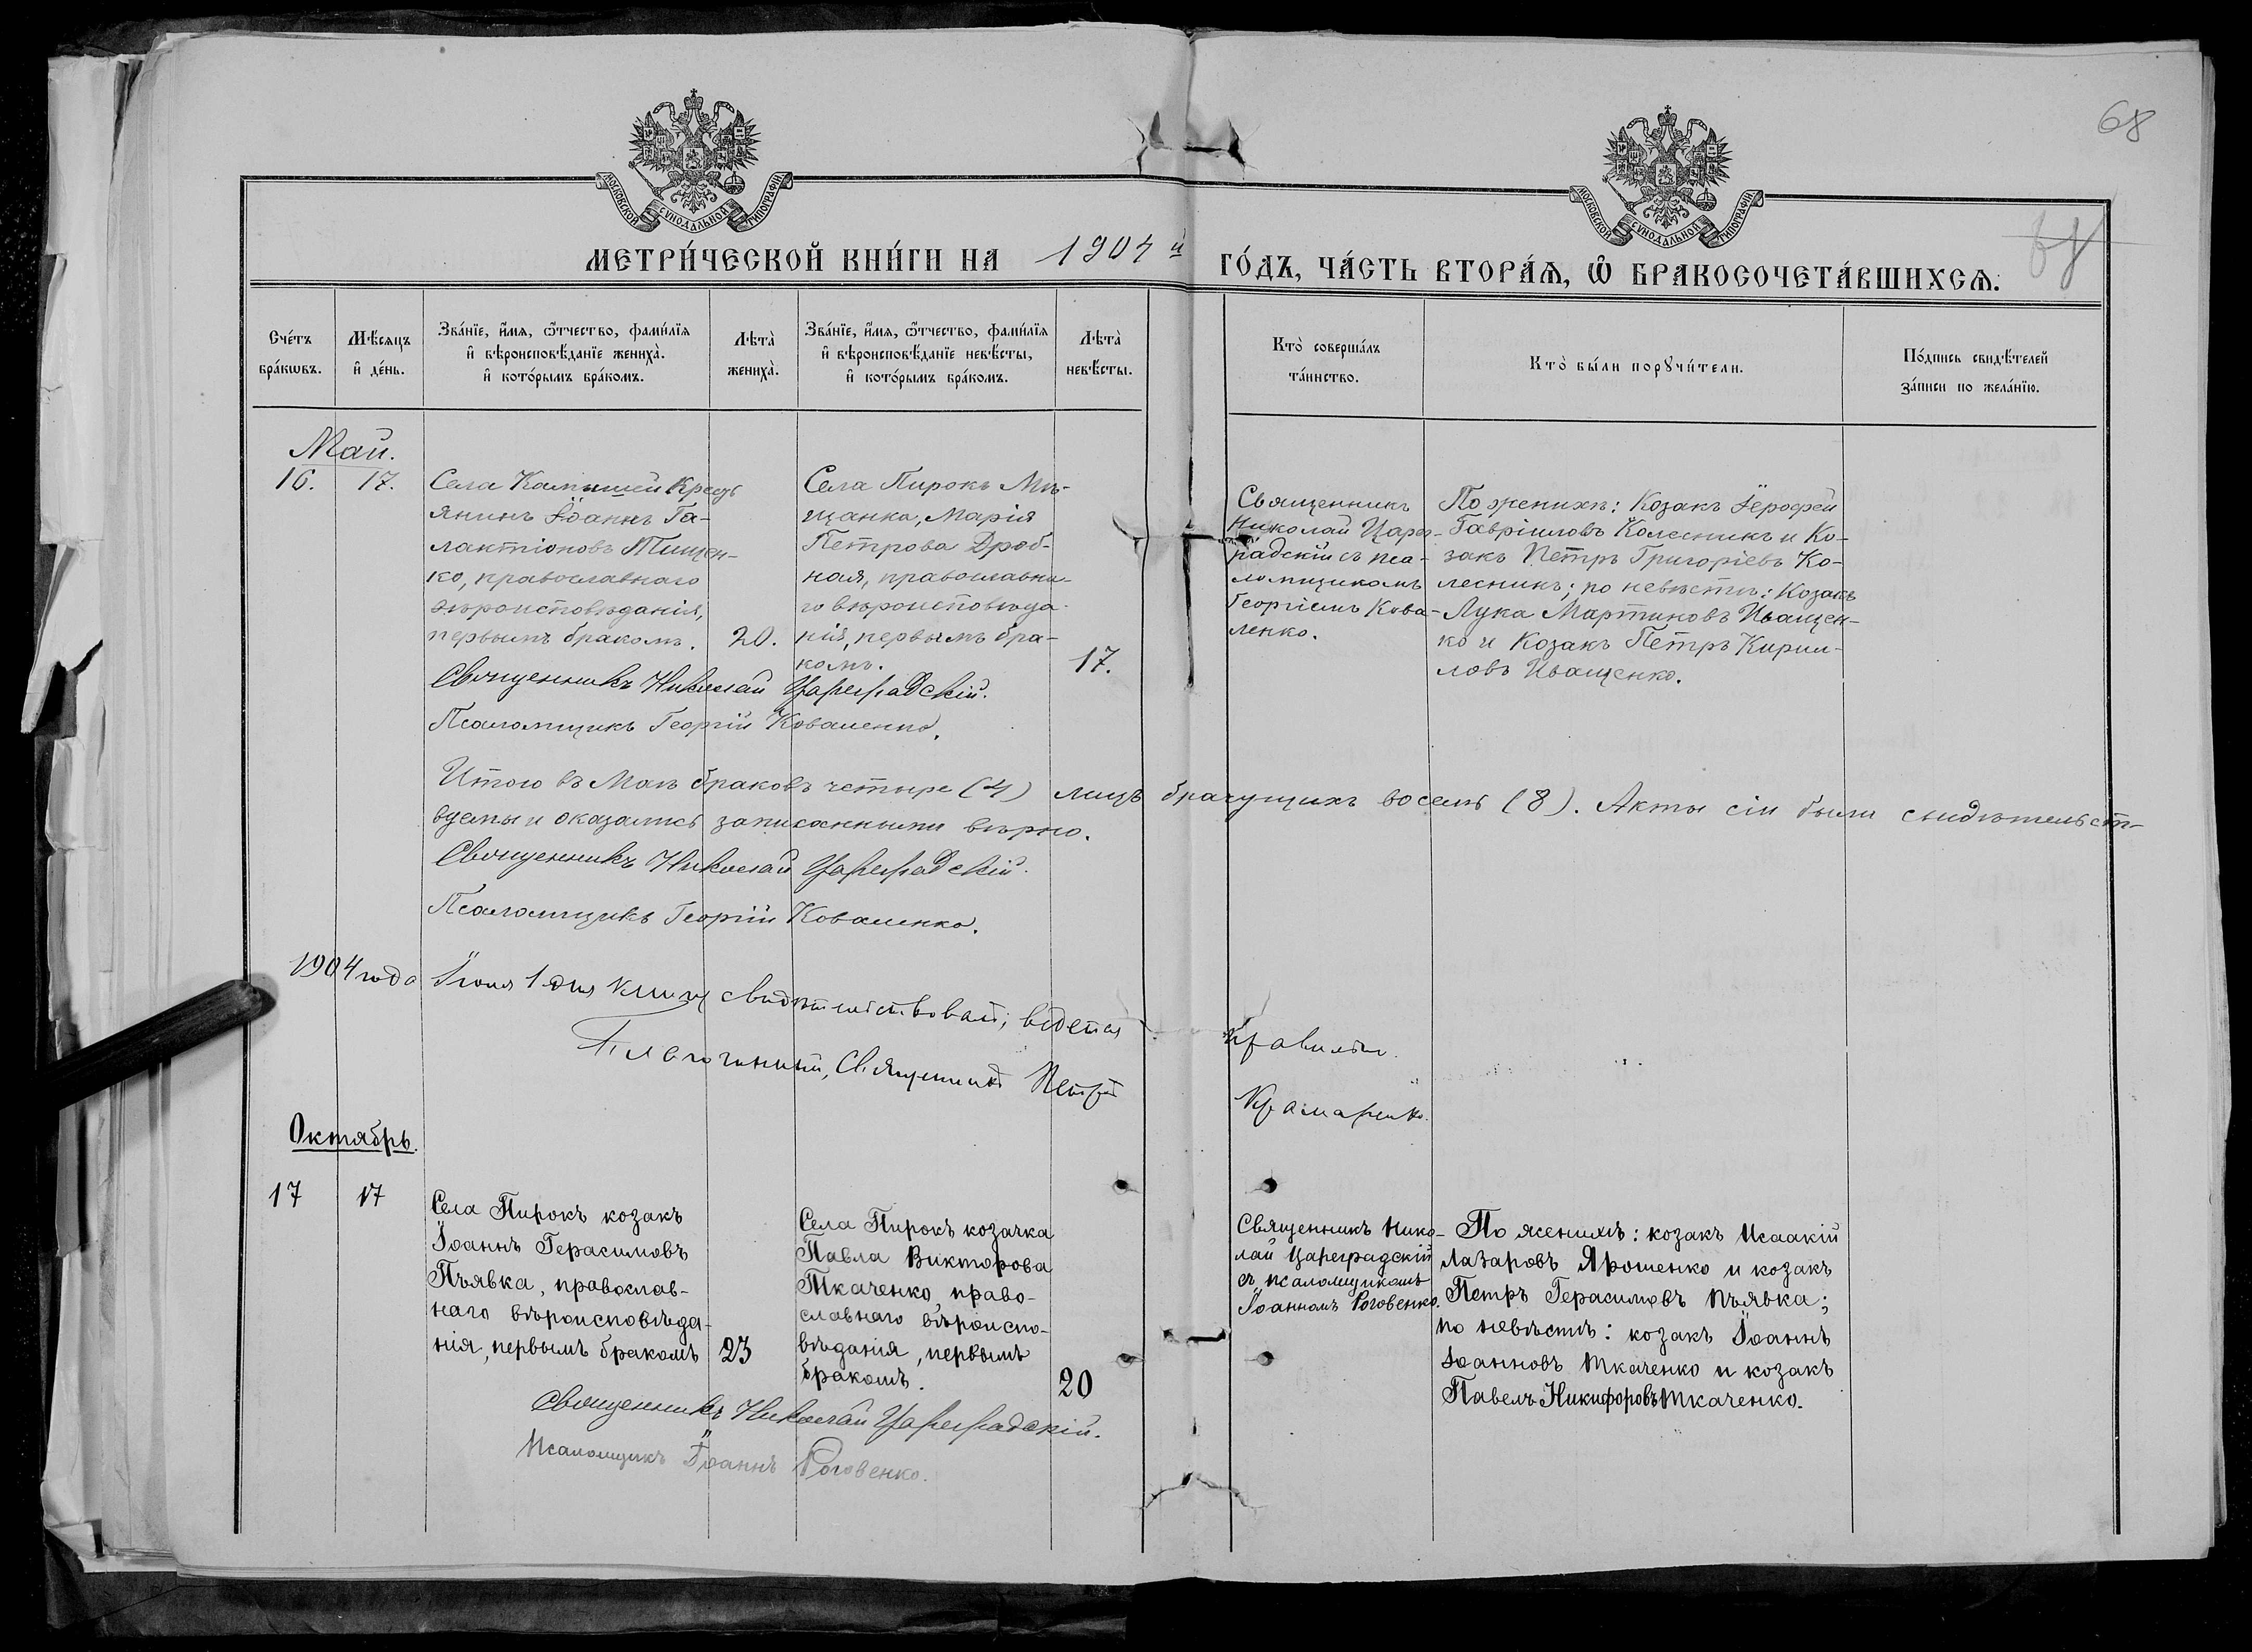 68
МОСКОВСКОЙ СѴНОДАЛЬНОЙ ТИПОГРАФІИ
МОСКОВСКОЙ СѴНОДАЛЬНОЙ ТИПОГРАФІИ
МЕТРИ́ЧЕСКОЙ КНИ́ГИ НА 1904й ГО́ДЪ, ЧА́СТЬ ВТОРА́Ѧ, Ѽ БРАКОСОЧЕТА́ВШИХСѦ.
Сче́тъ бра́кѡвъ.
Мѣ́сяцъ и҆ де́нь.
Зва́нїе, и҆́мѧ, ѻ҆́тчество, фами́лїѧ
и҆ вѣроисповѣ́данїе жениха̀.
и҆ кото́рымъ бра́комъ.
Лѣта̀ жениха̀.
Зва́нїе, и҆́мѧ, ѻ҆́тчество, фами́лїѧ
и҆ вѣроисповѣ́данїе невѣ́сты,
и҆ кото́рымъ бра́комъ.
Лѣта̀ невѣ́сты.
Кто̀ соверша́лъ
та́инство.
Кто̀ бы́ли порꙋчи́тели.
По́дпись свидѣ́телей
за́писи по жела́нїю.
Май.
16. 17.
Села Камышей Кресть
янинъ Іоаннъ Га-
лактіоновъ Тищен-
ко, православнаго
вѣроисповѣданія,
первымъ бракомъ. 20.
Села Пирокъ Мѣ-
щанка, Марія
Петрова Дроб-
ная, православна-
го вѣроисповѣда-
нія, первымъ бра-
комъ. 17.
Священникъ
Николай Царег-
радскій съ пса-
ломщикомъ
Георгіемъ Кова-
ленко.
По женихѣ: Козакъ Іерофей
Гавріиловъ Колесникъ и Ко-
закъ Петръ Григоріевъ Ко-
лесникъ; по невѣстѣ: Козакъ
Лука Мартиновъ Иващен-
ко и Козакъ Петръ Кирил-
ловъ Иващенко.
Священникъ Николай Цареградскій.
Псаломщикъ Георгій Коваленко.
Итого въ Маѣ браковъ четыре (4) лицъ брачущихъ восемь (8). Акты сіи были свидѣтельст-
вуемы и оказались записанными вѣрно.
Священникъ Николай Цареградскій.
Псаломщикъ Георгій Коваленко.
1904 года Іюня 1 дня книгу свидѣтельствовалъ; ведется правильно.
Благочинный, Священникъ Петръ Крамаренко.
Октябрь.
17 17
Села Пирокъ козакъ
Іоаннъ Герасимовъ
Пъявка, православ-
наго вѣроисповѣда-
нія, первымъ бракомъ 23
Села Пирокъ козачка
Павла Викторова
Ткаченко, право-
славнаго вѣроиспо-
вѣданія, первымъ
бракомъ. 20
Священникъ Нико-
лай Цареградскій
съ псаломщикомъ
Іоанномъ Роговенко.
По женихѣ: козакъ Исаакій
Лазаровъ Ярошенко и козакъ
Петръ Герасимовъ Пъявка;
по невѣстѣ: козакъ Іоаннъ
Іоанновъ Ткаченко и козакъ
Павелъ Никифоровъ Ткаченко.
Священникъ Николай Цареградскій.
Псаломщикъ Іоаннъ Роговенко.